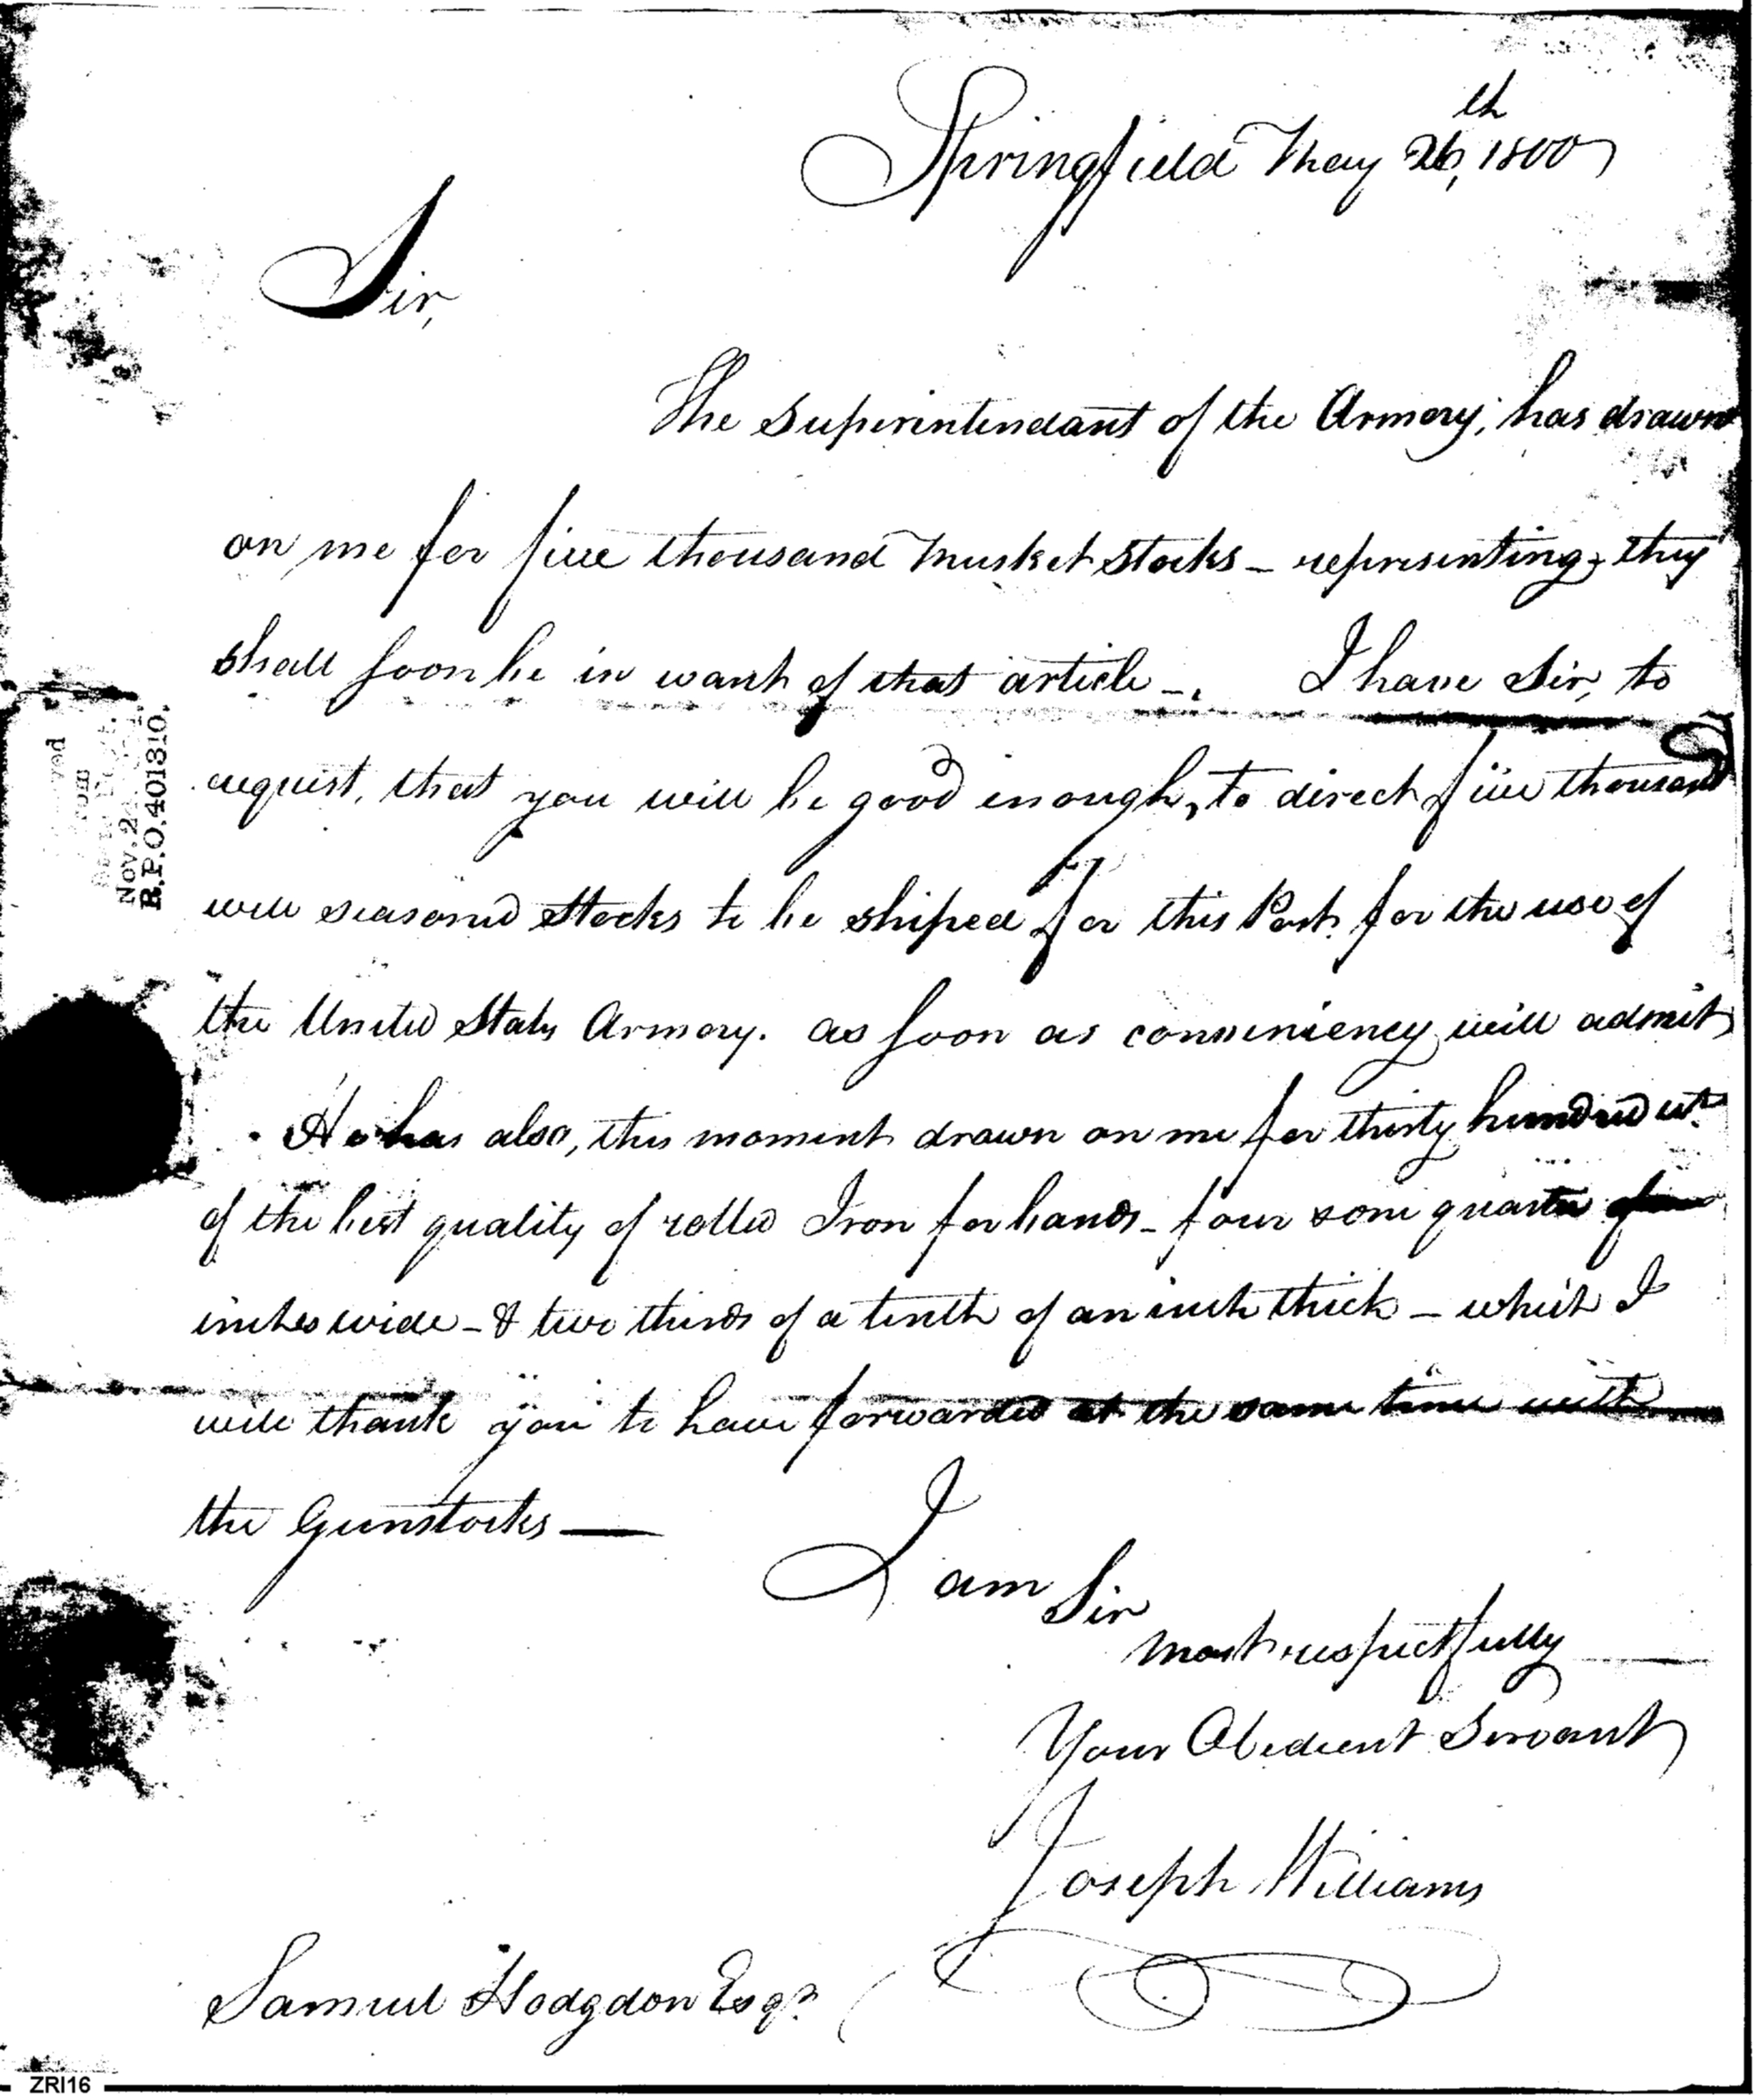 Springfield May 26th, 1800
Sir,
The Superintendant of the Armory, has drawn
on me for five thousand Musket Stocks – representing, they
shall soon be in want of that article –. I have Sir, to
request, that you will be good enough, to direct five thousand
well seasoned Stocks to be shiped for this Port for the use of
the United States Armory. as soon as conveniency will admit
He has also, this moment drawn on me for thirty hundred wt.
of the best quality of rolled Iron for bands – four some quarter
inches wide – & two thirds of a tenth of an inch thick – which I
will thank you to have forwarded at the same time with
the Gunstocks —
I am Sir
most respectfully
Your Obedient Servant
Joseph Williams
Samuel Hodgdon Esqr.
Nov. 2
R.P.O. 401310.
ZRI16